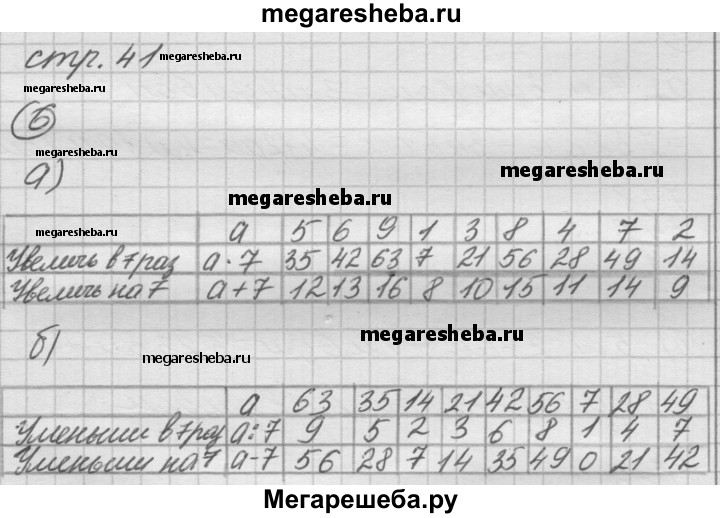 megaresheba.ru
стр. 41 megaresheba.ru
megaresheba.ru
6
megaresheba.ru
а) megaresheba.ru
megaresheba.ru
megaresheba.ru а 5 6 9 1 3 8 4 7 2
Увеличь в 7 раз а · 7 35 42 63 7 21 56 28 49 14
Увеличь на 7 а + 7 12 13 16 8 10 15 11 14 9
б) megaresheba.ru
megaresheba.ru
а 63 35 14 21 42 56 7 28 49
Уменьши в 7 раз а : 7 9 5 2 3 6 8 1 4 7
Уменьши на 7 а - 7 56 28 7 14 35 49 0 21 42
Мегарешеба.ру